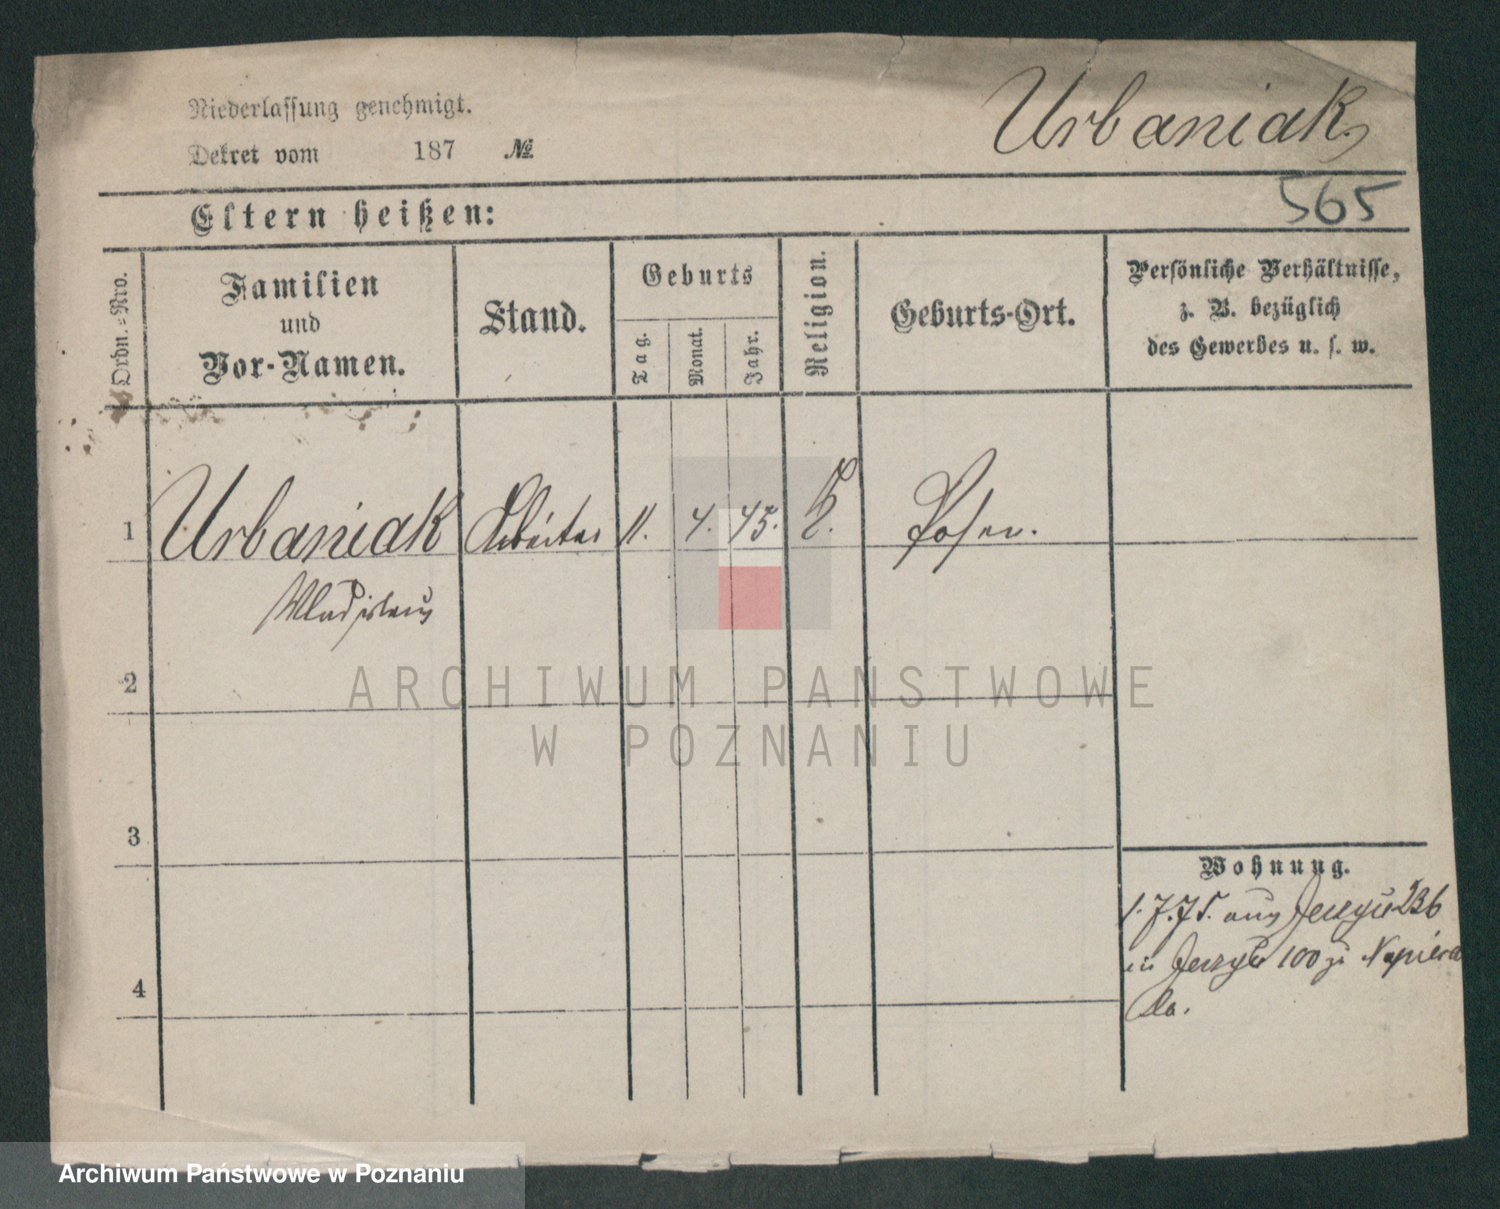 Niederlassung genehmigt.
Dekret vom 187 №
Urbaniak
Eltern heißen:
565
Ordn.-Nro.
Familien
und
Vor-Namen.
Stand.
Geburts
Tag.
Monat.
Jahr.
Religion.
Geburts-Ort.
Persönliche Verhältnisse,
z. B. bezüglich
des Gewerbes u. s. w.
1 Urbaniak Arbeiter 11. 4. 45. Posen.
Wladislaus
2
ARCHIWUM PAŃSTWOWE
W POZNANIU
3
4
Wohnung.
1.7.75. aus 236
in 100
Archiwum Państwowe w Poznaniu